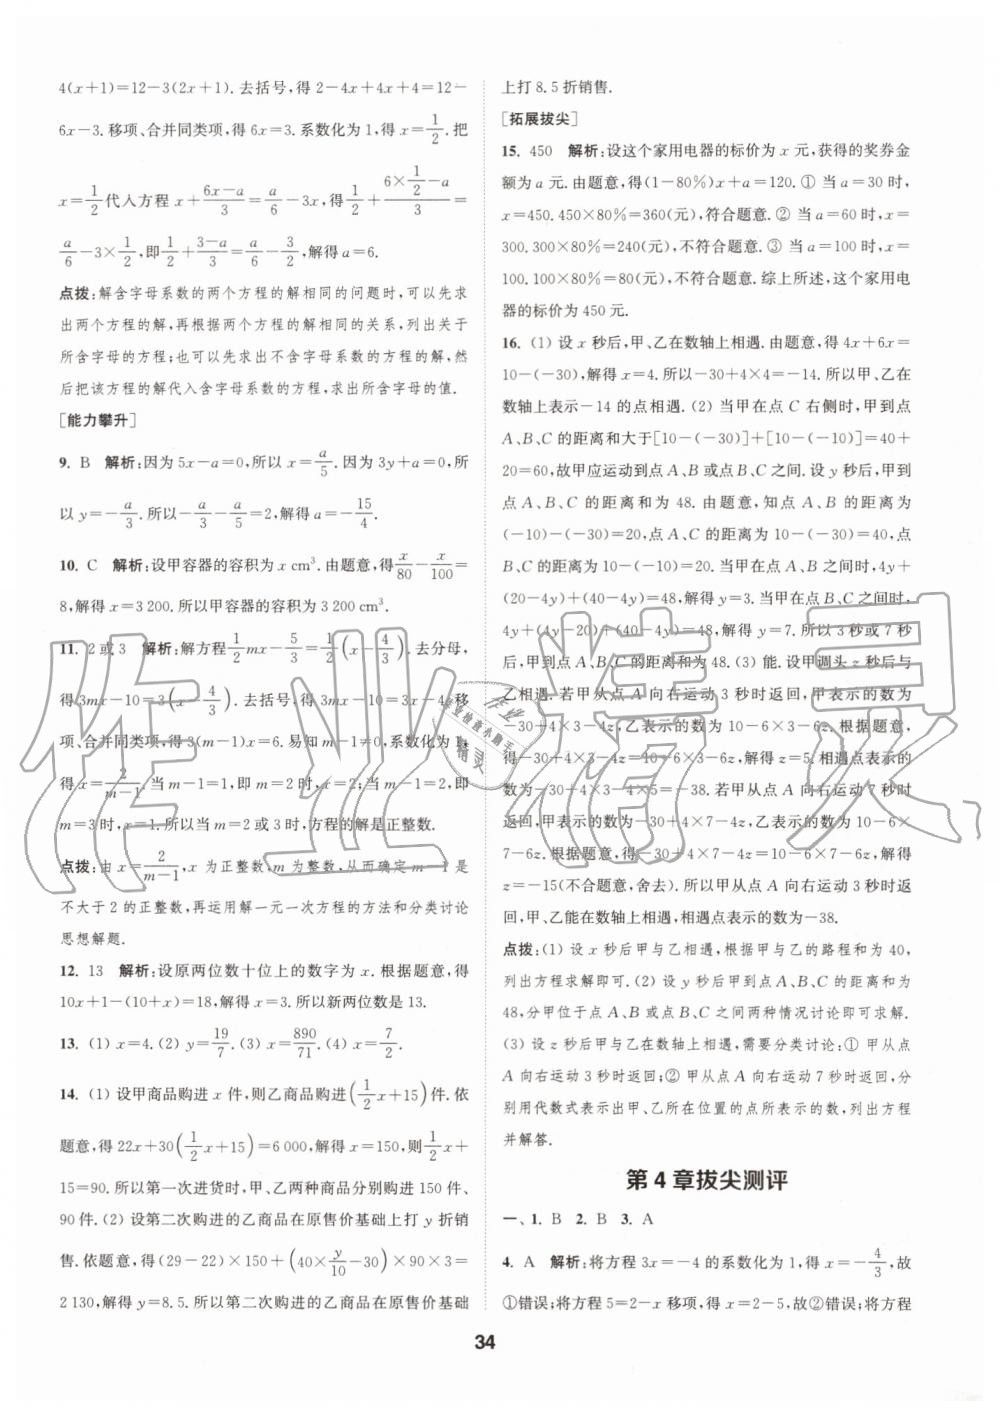 4(x+1)=12-3(2x+1).去括号,得 2-4x+4x+4=12-
6x-3.移项、合并同类项,得 6x=3.系数化为 1,得 x=1/2.把
x=1/2代入方程 x+(6x-a)/3=a/6-3x,得1/2+(6×1/2-a)/3=
a/6-3×1/2,即1/2+(3-a)/3=a/6-3/2,解得 a=6.
点拨:解含字母系数的两个方程的解相同的问题时,可以先求
出两个方程的解,再根据两个方程的解相同的关系,列出关于
所含字母的方程;也可以先求出不含字母系数的方程的解,然
后把该方程的解代入含字母系数的方程,求出所含字母的值.
[能力攀升]
9. B 解析:因为 5x-a=0,所以 x=a/5.因为 3y+a=0,所
以 y=-a/3.所以-a/3-a/5=2,解得 a=-15/4.
10. C 解析:设甲容器的容积为 x cm³.由题意,得x/80-x/100=
8,解得 x=3 200.所以甲容器的容积为 3 200 cm³.
11. 2 或 3 解析:解方程1/2mx-5/3=1/2(x-4/3).去分母,
得 3mx-10=3(x-4/3).去括号,得 3mx-10=3x-4.移
项、合并同类项,得 3(m-1)x=6.易知 m-1≠0,系数化为 1,
得 x=2/(m-1).当 m-1=1,即 m=2 时,x=2;当 m-1=2,即
m=3 时,x=1.所以当 m=2 或 3 时,方程的解是正整数.
点拨:由 x=2/(m-1),x 为正整数,m 为整数,从而确定 m-1 是
不大于 2 的正整数,再运用解一元一次方程的方法和分类讨论
思想解题.
12. 13 解析:设原两位数十位上的数字为 x.根据题意,得
10x+1-(10+x)=18,解得 x=3.所以新两位数是 13.
13. (1) x=4.(2) y=19/7.(3) x=890/71.(4) x=7/2.
14. (1) 设甲商品购进 x 件,则乙商品购进(1/2x+15)件.依
题意,得 22x+30(1/2x+15)=6 000,解得 x=150,则1/2x+
15=90.所以第一次进货时,甲、乙两种商品分别购进 150 件、
90 件.(2) 设第二次购进的乙商品在原售价基础上打 y 折销
售.依题意,得(29-22)×150+(40×y/10-30)×90×3=
2 130,解得 y=8.5.所以第二次购进的乙商品在原售价基础
上打 8.5 折销售.
[拓展拔尖]
15. 450 解析:设这个家用电器的标价为 x 元,获得的奖券金
额为 a 元.由题意,得(1-80%)x+a=120.① 当 a=30 时,
x=450.450×80%=360(元),符合题意.② 当 a=60 时,x=
300.300×80%=240(元),不符合题意.③ 当 a=100 时,x=
100.100×80%=80(元),不符合题意.综上所述,这个家用电
器的标价为 450 元.
16. (1) 设 x 秒后,甲、乙在数轴上相遇.由题意,得 4x+6x=
10-(-30),解得 x=4.所以-30+4×4=-14.所以甲、乙在
数轴上表示-14 的点相遇.(2) 当甲在点 C 右侧时,甲到点
A、B、C 的距离和大于[10-(-30)]+[10-(-10)]=40+
20=60,故甲应运动到点 A、B 或点 B、C 之间.设 y 秒后,甲到
点 A、B、C 的距离和为 48.由题意,知点 A、B 的距离为
(-10)-(-30)=20,点 A、C 的距离为 10-(-30)=40,点
B、C 的距离为 10-(-10)=20.当甲在点 A、B 之间时,4y+
(20-4y)+(40-4y)=48,解得 y=3.当甲在点 B、C 之间时,
4y+(4y-20)+(40-4y)=48,解得 y=7.所以 3 秒或 7 秒
后,甲到点 A、B、C 的距离和为 48.(3) 能.设甲调头 z 秒后与
乙相遇.若甲从点 A 向右运动 3 秒时返回,甲表示的数为
-30+4×3-4z,乙表示的数为 10-6×3-6z.根据题意,得
-30+4×3-4z=10-6×3-6z,解得 z=5.相遇点表示的
数为-30+4×3-4×5=-38.若甲从点 A 向右运动 7 秒时
返回,甲表示的数为-30+4×7-4z,乙表示的数为 10-6×
7-6z.根据题意,得-30+4×7-4z=10-6×7-6z,解得
z=-15(不合题意,舍去).所以甲从点 A 向右运动 3 秒时返
回,甲、乙能在数轴上相遇,相遇点表示的数为-38.
点拨:(1) 设 x 秒后甲与乙相遇,根据甲与乙的路程和为 40,
列出方程求解即可.(2) 设 y 秒后甲到点 A、B、C 的距离和为
48,分甲位于点 A、B 或点 B、C 之间两种情况讨论即可求解.
(3) 设 z 秒后甲与乙在数轴上相遇,需要分类讨论:① 甲从点
A 向右运动 3 秒时返回;② 甲从点 A 向右运动 7 秒时返回,分
别用代数式表示出甲、乙所在位置的点所表示的数,列出方程
并解答.
第 4 章拔尖测评
一、1. B 2. B 3. A
4. A 解析:将方程 3x=-4 的系数化为 1,得 x=-4/3,故
①错误;将方程 5=2-x 移项,得 x=2-5,故②错误;将方程
34
作业精灵
作业检查小助手
精灵